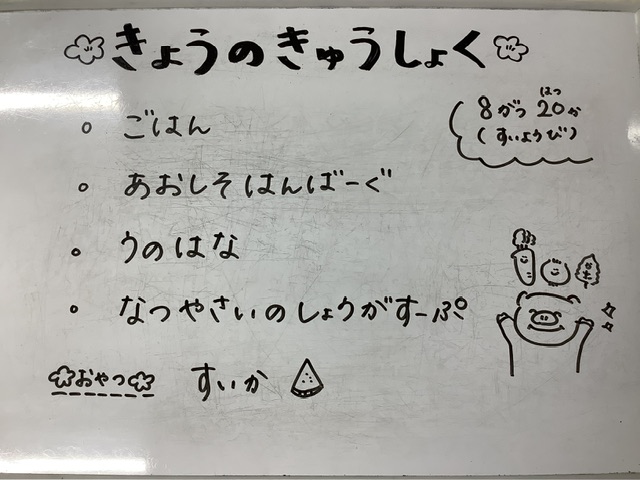 きょうのきゅうしょく
8がつ20か
はつ
(すいようび)
○ ごはん
○ あおしそはんばーぐ
○ うのはな
○ なつやさいのしょうがすーぷ
おやつ すいか